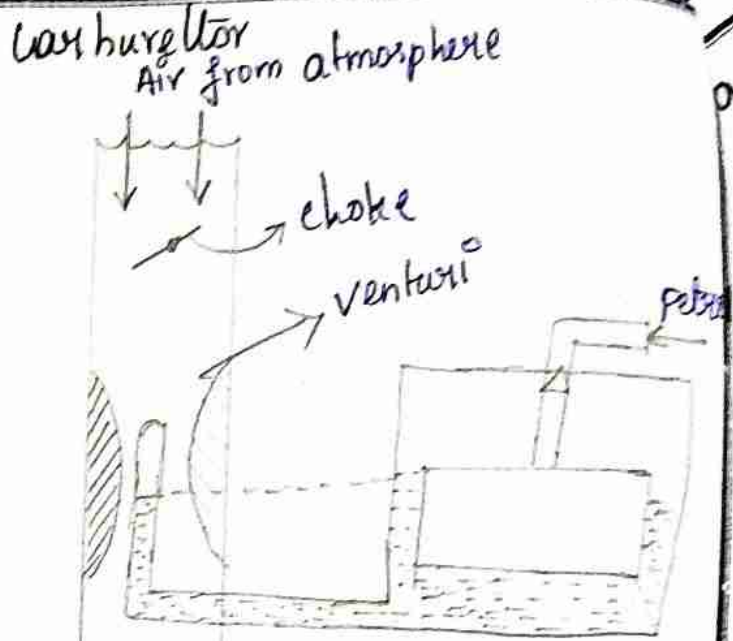 Carburettor
Air from atmosphere
choke
venturi
Petro